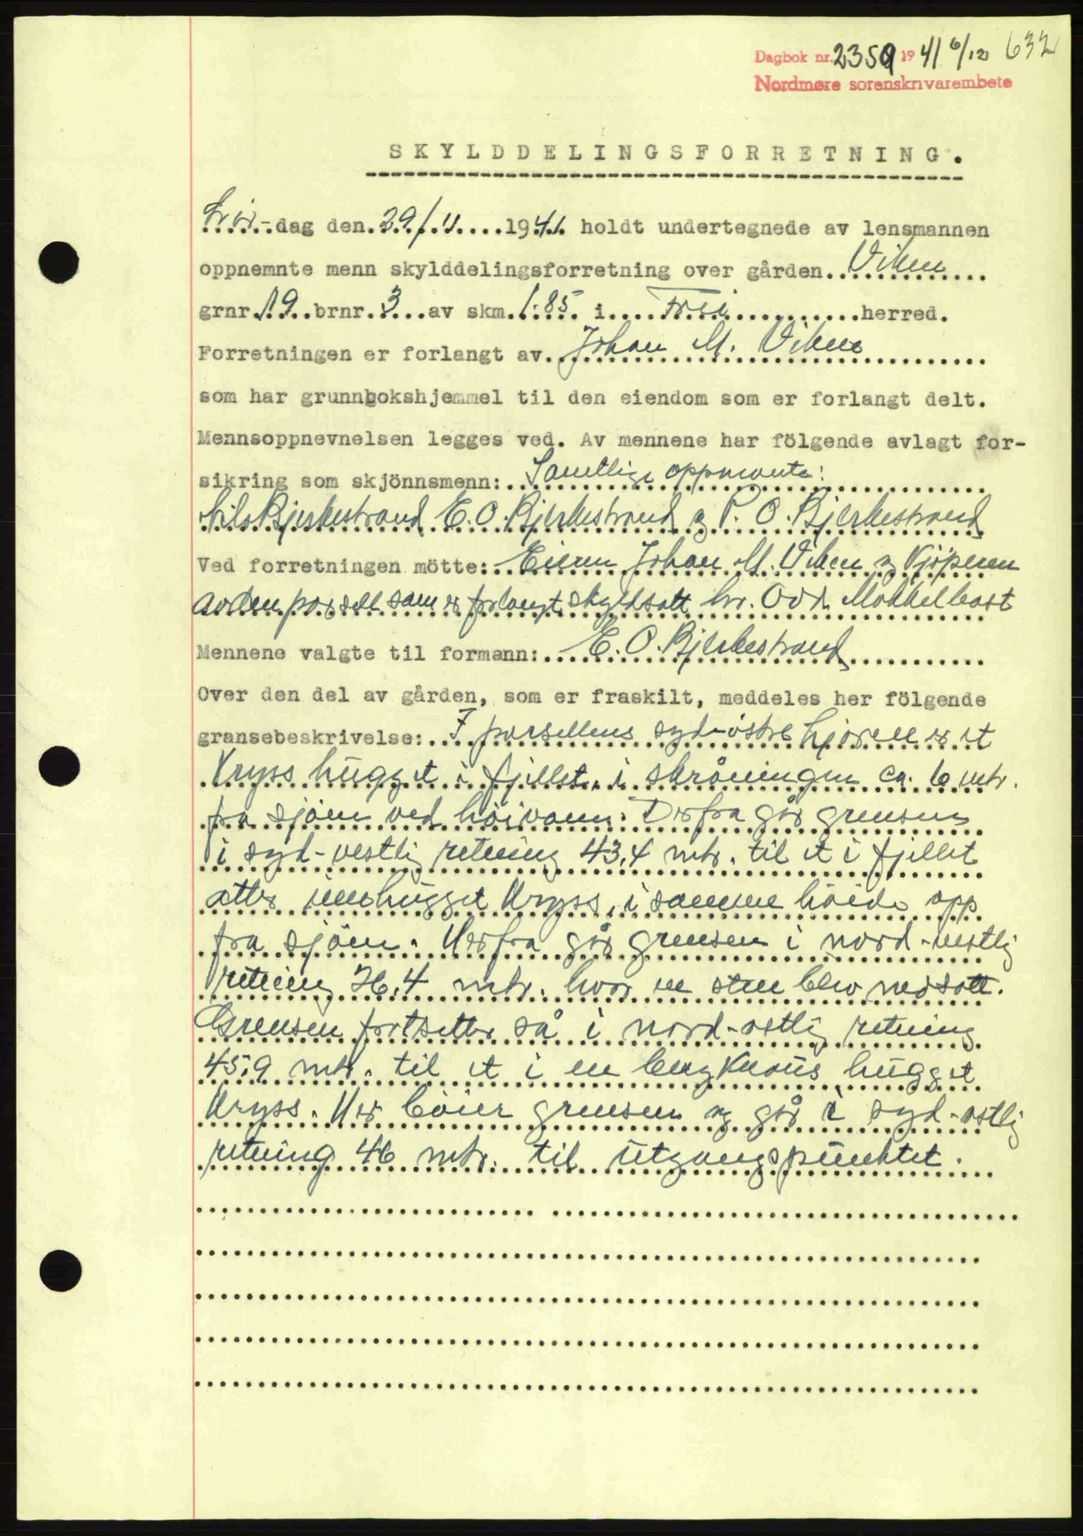 632
Dagbok nr. 2359 1941 6/12
Nordmøre sorenskrivarembete
SKYLDDELINGSFORRETNING.
Lør-dag den 29/11 1941 holdt undertegnede av lensmannen
oppnemnte menn skylddelingsforretning over gården Viken
grnr. 19 brnr. 3 av skm. 1.85 i Frei herred.
Forretningen er forlangt av Johan M. Viken
som har grunnbokshjemmel til den eiendom som er forlangt delt.
Mennsoppnevnelsen legges ved. Av mennene har fölgende avlagt for-
sikring som skjönnsmenn: Samtlige oppnevnte:
Nils Bjerkestrand E. O. Bjerkestrand og P. O. Bjerkestrand
Ved forretningen mötte: Eieren Johan M. Viken og Kjöperen
av den parsell som er forlangt skyldsatt hr. Odd Mokkelbost
Mennene valgte til formann: E. O. Bjerkestrand
Over den del av gården, som er fraskilt, meddeles her fölgende
gransebeskrivelse: I parsellens syd-östre hjörne er et
Kryss hugget i fjellet, i skråningen ca. 6 mtr.
fra sjöen ved höivann. Derfra går grensen
i syd-vestlig retning 43,4 mtr. til et i fjellet
atter innhugget Kryss, i samme höide opp
fra sjöen. Herfra går grensen i nord-vestlig
retning 36,4 mtr. hvor en sten blev nedsatt.
Grensen fortsetter så i nord-ostlig retning
45,9 mtr. til et i en bergknaus hugget
Kryss. Her böier grensen og går i syd-ostlig
retning 46 mtr. til utgangspunktet.